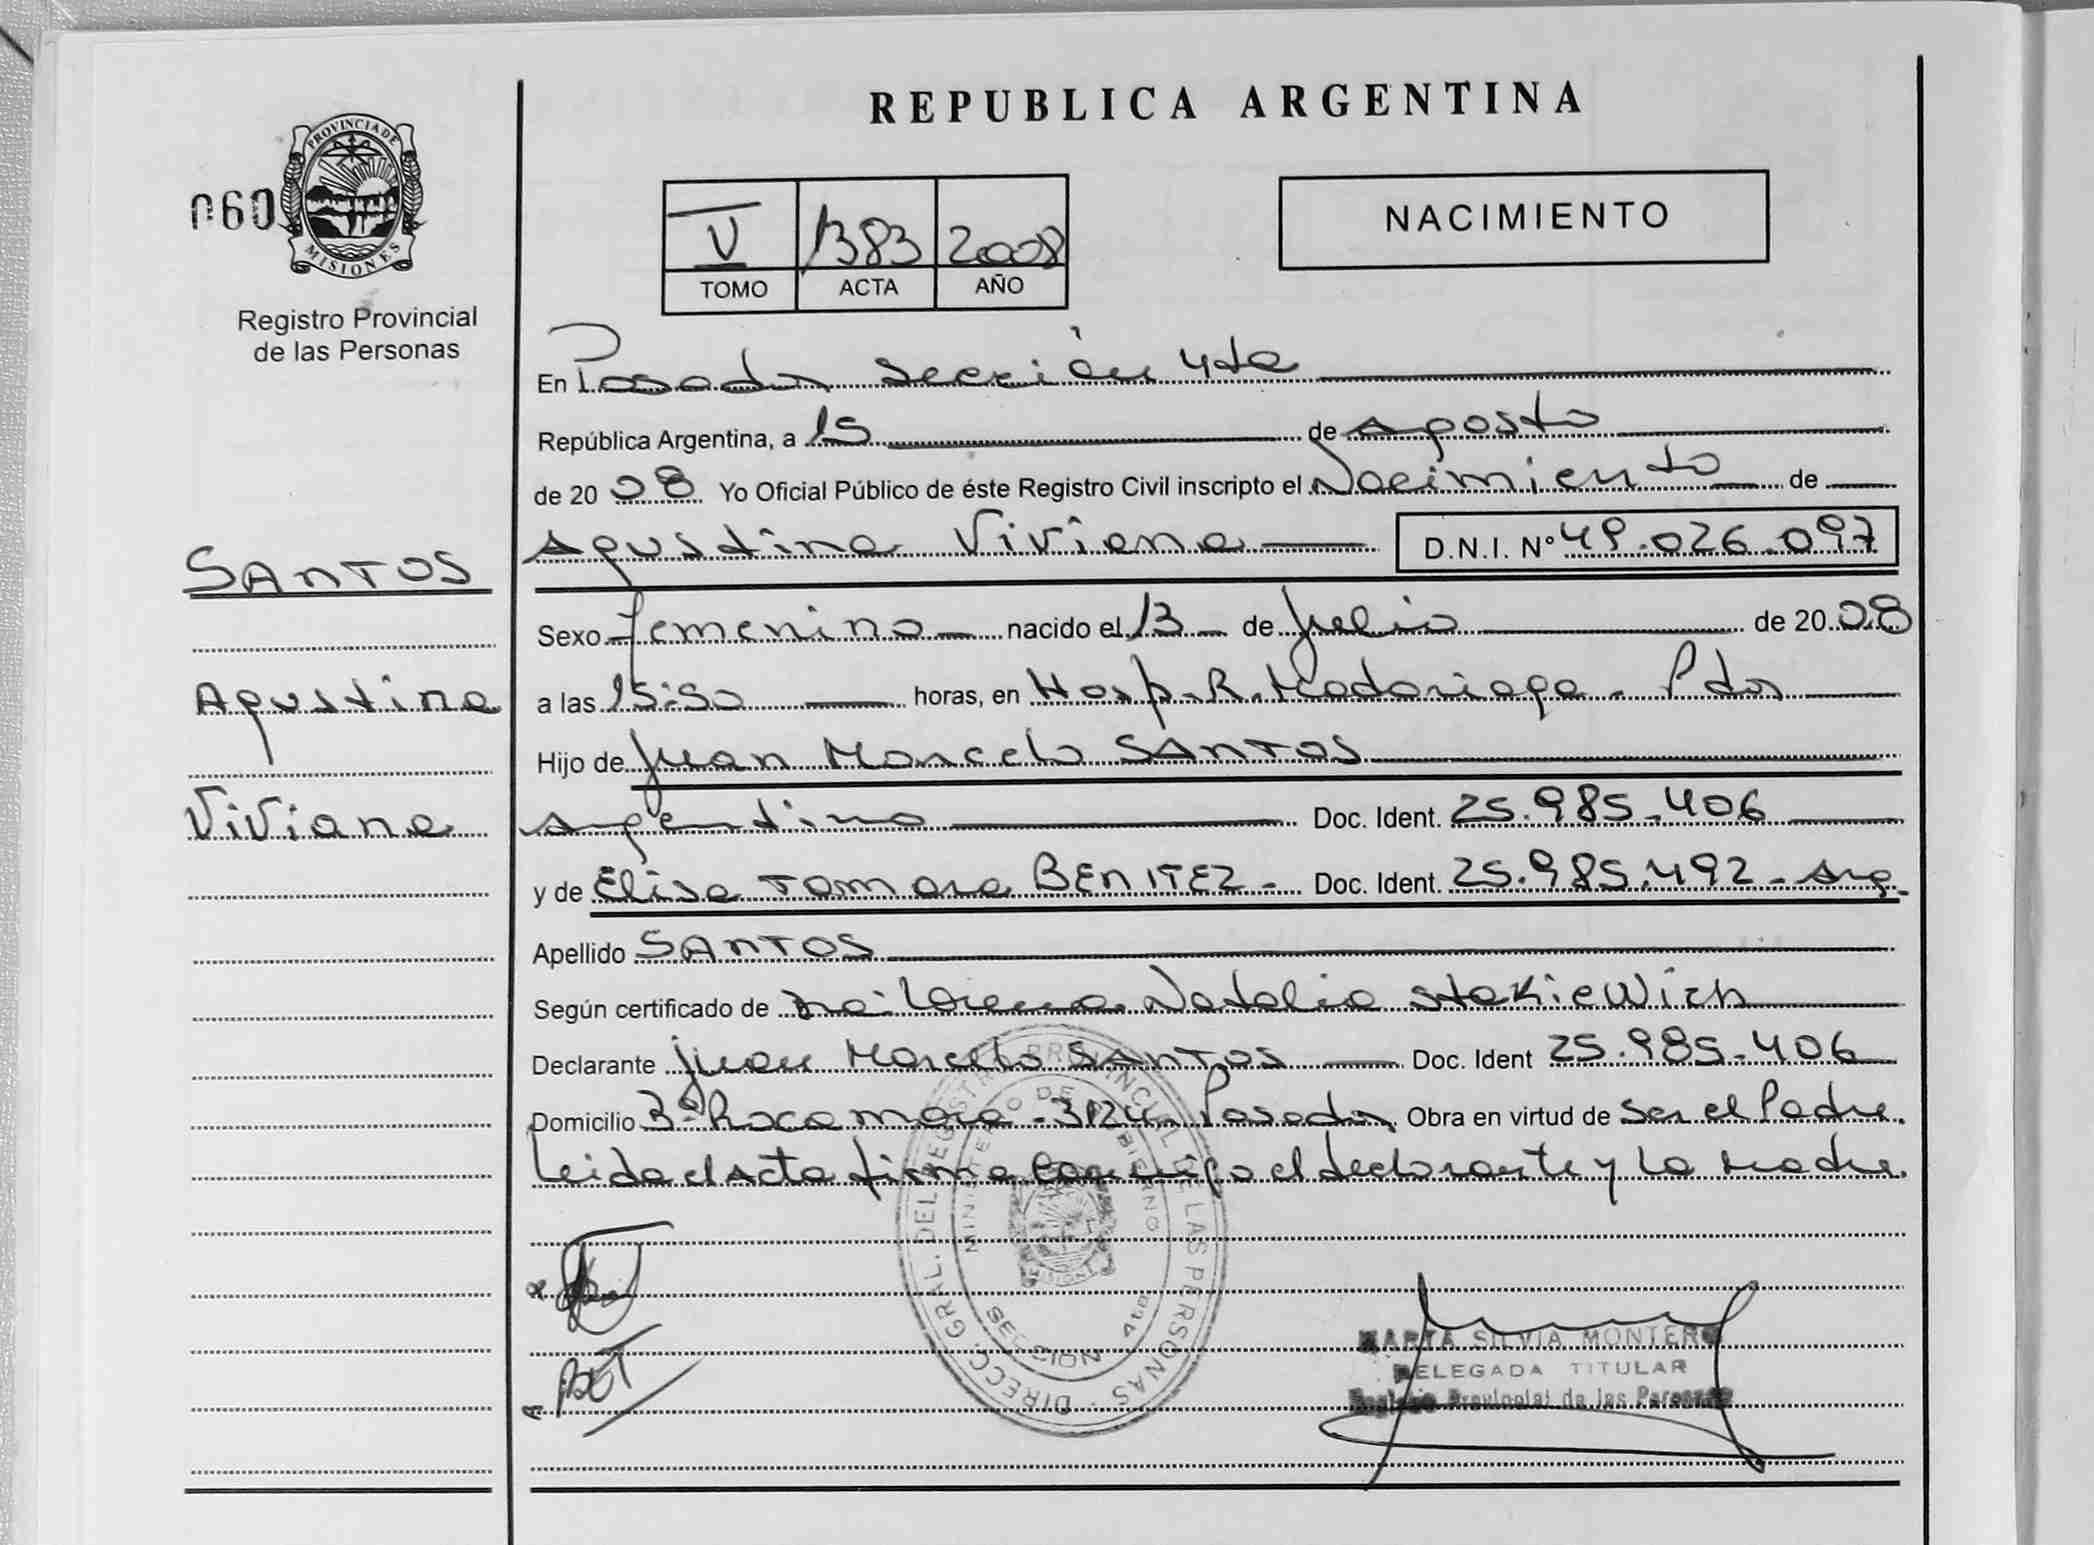 REPUBLICA ARGENTINA
PROVINCIA DE
MISIONES
060
Registro Provincial
de las Personas
V 1383 2008
TOMO ACTA AÑO
NACIMIENTO
En Posadas sección 4ta
República Argentina, a 15 de Agosto
de 2008 Yo Oficial Público de éste Registro Civil inscripto el Nacimiento de
Agustina Viviana D.N.I. Nº 49.026.097
SANTOS
Agustina
Viviana
Sexo femenino nacido el 13 de Julio de 2008
a las 15:50 horas, en Hosp. R. Madariaga - Pdas
Hijo de Juan Marcelo SANTOS
argentino Doc. Ident. 25.985.406
y de Elisa Tamara BENITEZ - Doc. Ident. 25.985.492 - Arg.
Apellido SANTOS
Según certificado de Dra: Lorena Natalia Stakiewich
Declarante Juan Marcelo SANTOS Doc. Ident 25.985.406
Domicilio Bº Rocamora - 3124 - Posadas Obra en virtud de ser el Padre.
Leida el Acta firma conmigo el declarante y la Madre.
DIRECC. GRAL. DEL REGISTRO PROVINCIAL DE LAS PERSONAS
MINISTERIO DE GOBIERNO
MISIONES
SECCION 4ta
MARTA SILVIA MONTERO
DELEGADA TITULAR
Registro Provincial de las Personas